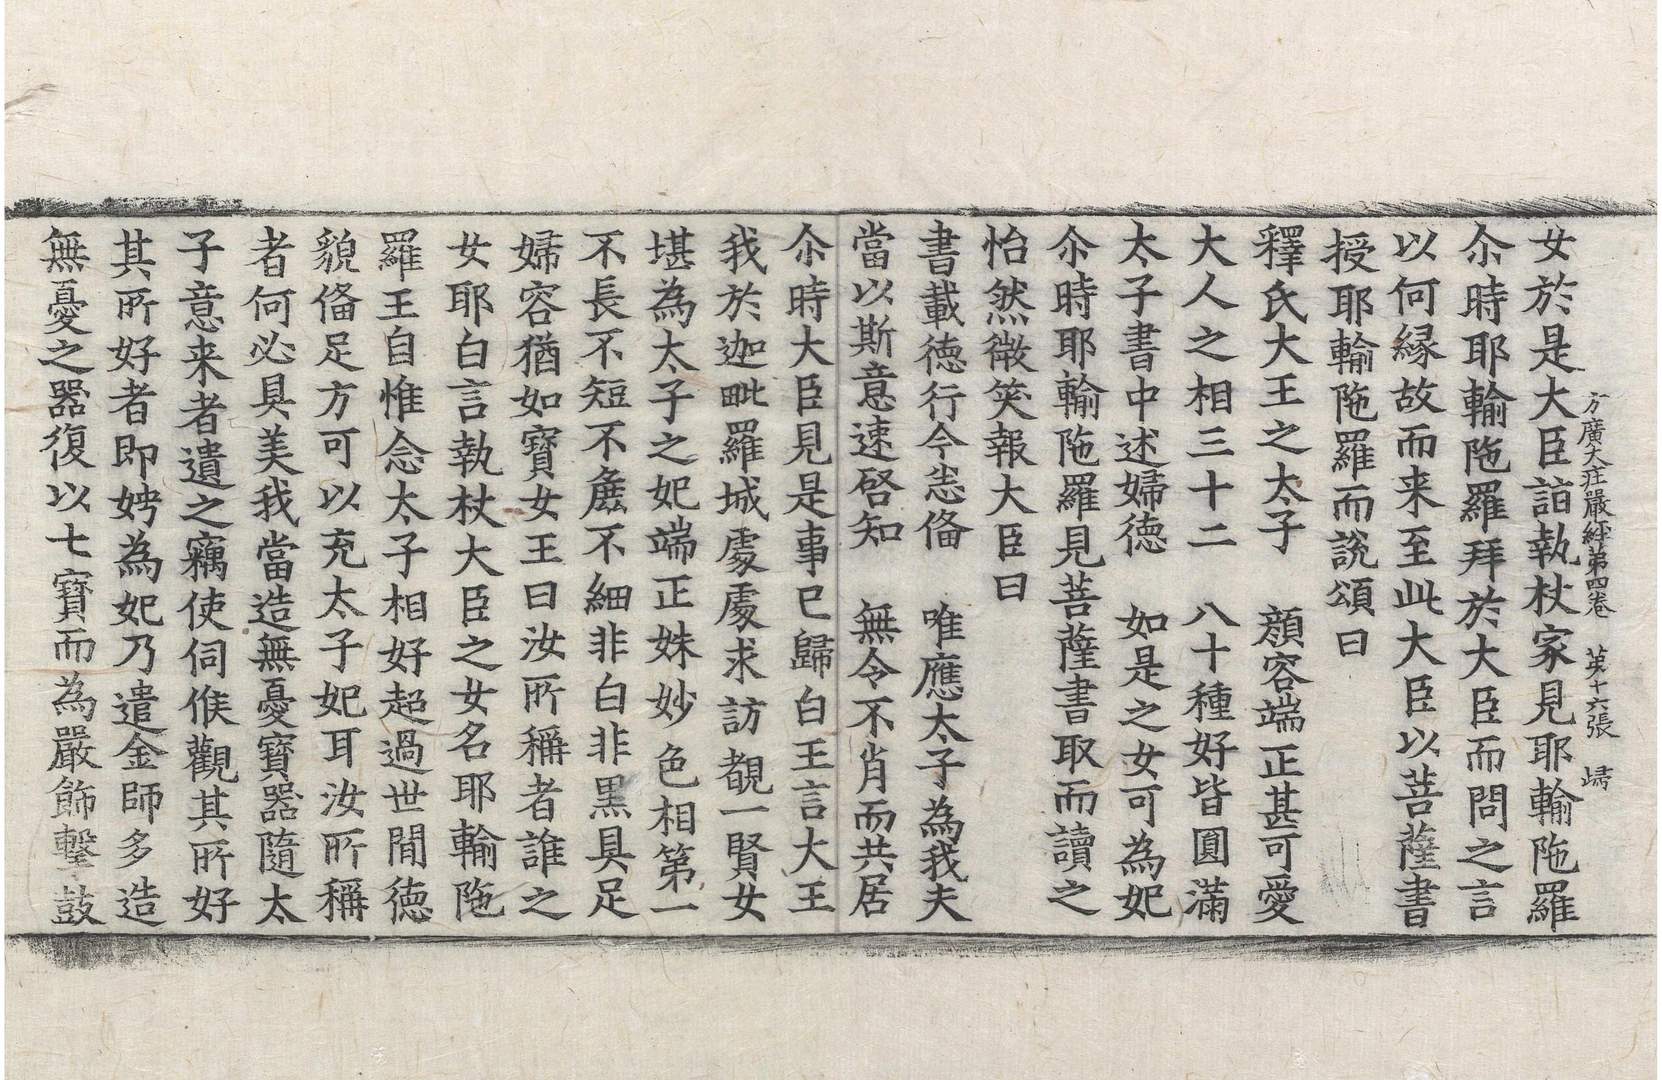 方廣大莊嚴經第四卷　第十六張　歸
女於是大臣詣執杖家見耶輸陁羅
尒時耶輸陁羅拜於大臣而問之言
以何緣故而来至此大臣以菩薩書
授耶輸陁羅而說頌曰
釋氏大王之太子　顔容端正甚可愛
大人之相三十二　八十種好皆圓滿
太子書中述婦德　如是之女可為妃
尒時耶輸陁羅見菩薩書取而讀之
怡然微笑報大臣曰
書載德行今恙俻　唯應太子為我夫
當以斯意速啓知　無令不肖而共居
尒時大臣見是事已歸白王言大王
我於迦毗羅城處處求訪覩一賢女
堪為太子之妃端正姝妙色相第一
不長不短不麁不細非白非黑具足
婦容猶如寶女王曰汝所稱者誰之
女耶白言執杖大臣之女名耶輸陁
羅王自惟念太子相好超過世間德
貌俻足方可以充太子妃耳汝所稱
者何必具美我當造無憂寶器隨太
子意来者遺之竊使伺候觀其所好
其所好者即娉為妃乃遣金師多造
無憂之器復以七寶而為嚴飾擊鼓